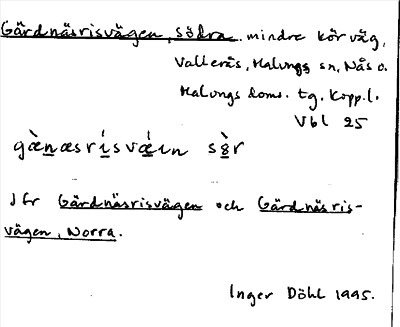 Gärdnäsrisvägen, södra. mindre körväg,
Vallerås, Malungs sn, Nås o.
Malungs doms. tg. Kopp. l.
Vbl 25
gæ̀næsrísvæ̀in sö̀r
Jfr Gärdnäsrisvägen och Gärdnäsris-
vägen, Norra.
Inger Döhl 1995.